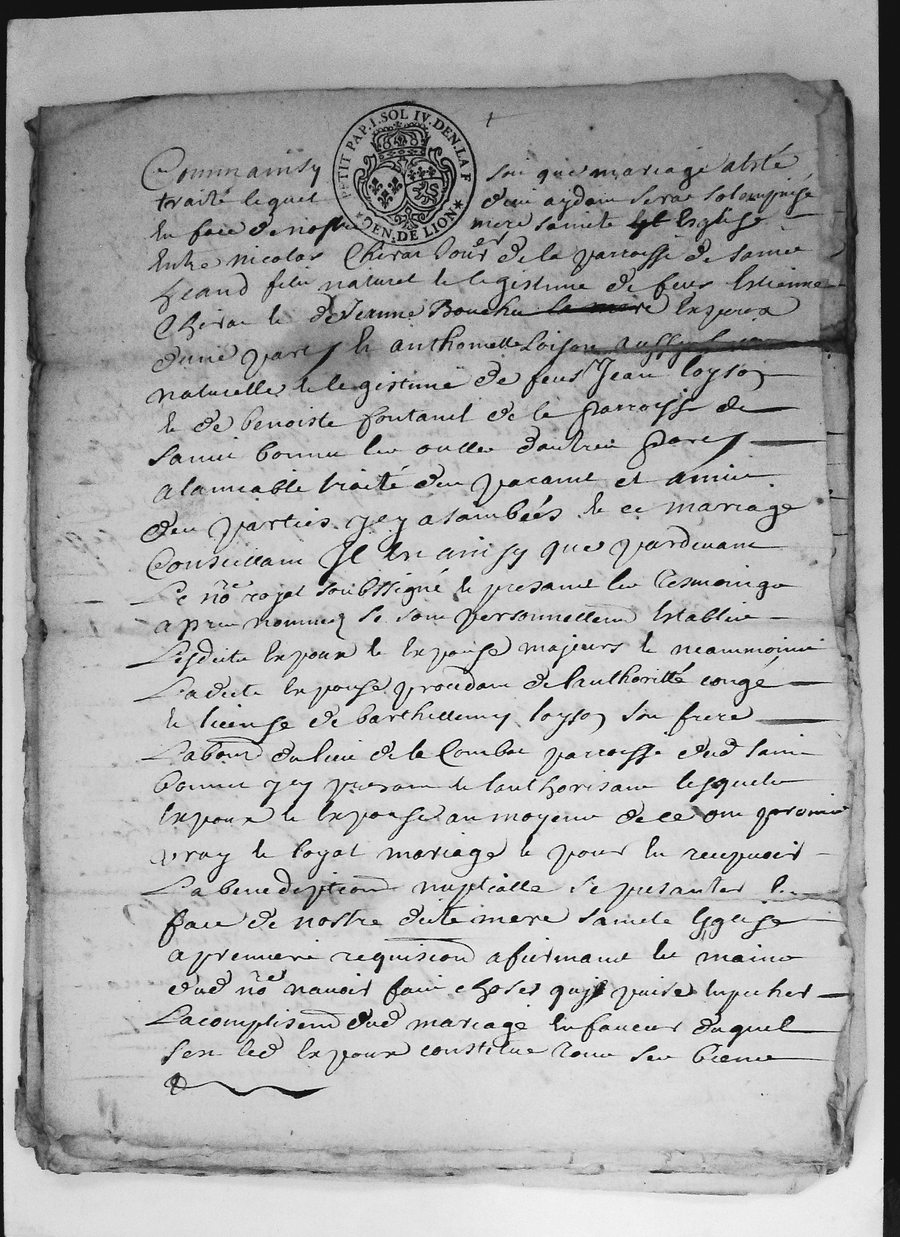 PETIT PAP. I. SOL IV. DEN. LA F
GEN. DE LION
Comme ainsy soit que mariage at esté
traité lequel dieu aydant sera solempnisé
en face de nostre mere saincte Esglise
Entre nicolas Cheval de la parroisse de
fils naturel et legistime de feus Estienne
et de Jeanne Bouchu la mere espoux
d'une part et anthoinette Loison aussy
naturelle et legistime de feus Jean loyson
et de benoiste fontanel de la parroisse de
sainct bonnet les oulles d'autre part
a lamiable traité des parans et amis
des parties jcy asambées et ce mariage
Conseillant Il est ainsy que pardevant
Le no.re royal soubssigné et presant les tesmoings
apres nommez se sont personnellem establis
Lesdits espoux et espouse majeurs et neammoins
Ladite espouse procedant de lauthoritté congé
et license de barthellemy loyson son frere
Labour du lieu de la Combe parroisse dud saint
bonnet jcy presant et lauthorisant lesquels
espoux et espouse au moyens de ce ont promis
vray et loyal mariage et pour en recepvoir
La benediption nuptialle se presanter en
face de nostre dicte mere saincte Esglise
a premiere requision afirmant es mains
dud no.re navoir fait choses quj puise enpecher
Lacomplisem dud mariage en faveur duquel
led espoux constitue tous ses biens